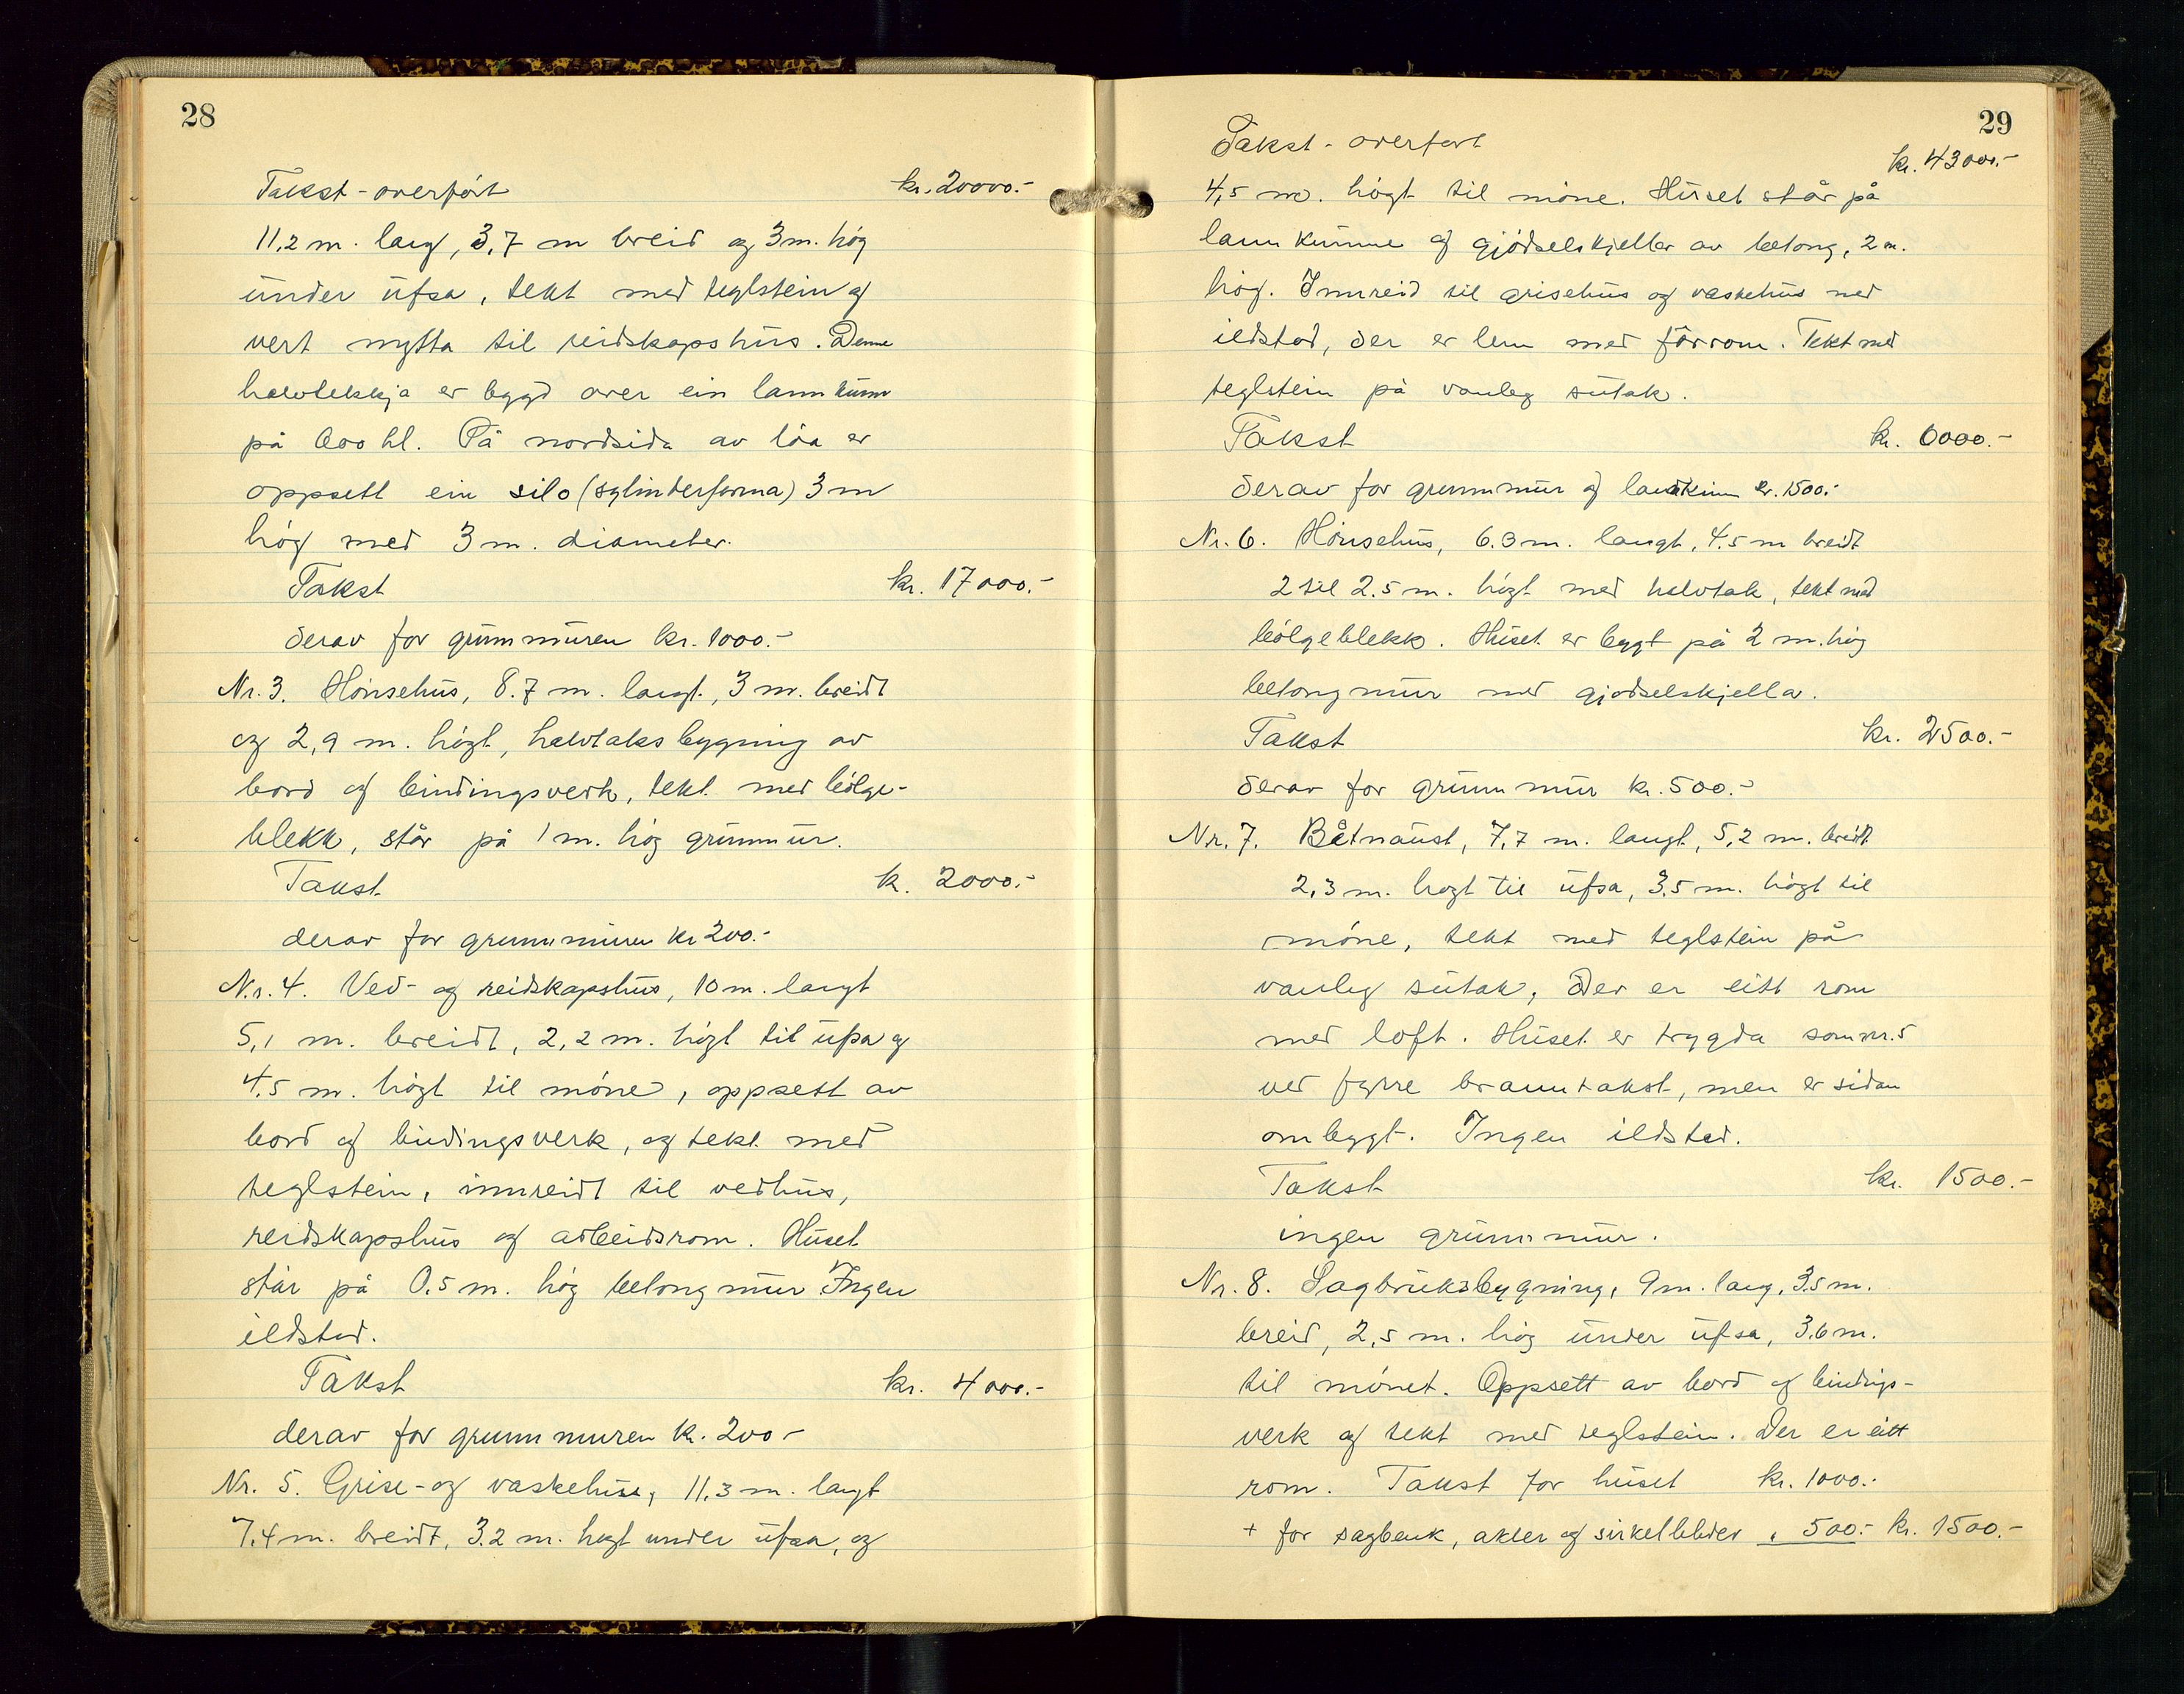 28
Takst - overført kr. 20000.-
11,2 m. lang, 3,7 m breid og 3 m. høg
under ufsa, tekt med teglstein og
vert nytta til reidskapshus. Denne
halvtekkja er bygd over ein lannkum
på 600 hl. På nordsida av løa er
oppsett ein silo (sylinderforma) 3 m
høg med 3 m. diameter.
Takst kr. 17000.-
derav for grunnmuren kr. 1000.-
Nr. 3. Hønsehus, 8.7 m. langt, 3 m. breidt
og 2,9 m. høgt, halvtaksbygning av
bord og bindingsverk, tekt med bølge-
blekk, står på 1 m. høg grunnmur.
Takst k. 2000.-
derav for grunnmuren kr 200.-
Nr. 4. Ved- og reidskapshus, 10 m. langt
5,1 m. breidt, 2,2 m. høgt til ufsa og
4.5 m. høgt til møne, oppsett av
bord og bindingsverk, og tekt med
teglstein, innreidt til vedhus,
reidskapshus og arbeidsrom. Huset
står på 0.5 m. høg betongmur Ingen
ildstad.
Takst kr. 4000.-
derav for grunnmuren kr. 200-
Nr. 5. Grise- og vaskehus, 11.3 m. langt
7.4 m. breidt, 3.2 m. høgt under ufsa, og
29
Takst - overført kr. 43000.-
4,5 m. høgt til møne. Huset står på
lannkumme og gjødselskjeller av betong, 2 m.
høg. Innreid til grisehus og vaskehus med
ildstad, der er lem med fórrom. Tekt med
teglstein på vanleg sutak.
Takst kr. 6000.-
derav for grunnmur og landkum kr. 1500.-
Nr. 6. Hønsehus, 6.3 m. langt, 4.5 m breidt
2 til 2.5 m. høgt med halvtak, tekt med
bølgeblekk. Huset er bygt på 2 m. høg
betongmur med gjødselskjellar.
Takst kr. 2500.-
derav for grunnmur kr. 500.-
Nr. 7. Båtnaust, 7,7 m. langt, 5,2 m. breidt
2,3 m. høgt til ufsa, 3.5 m. høgt til
møne, tekt med teglstein på
vanleg sutak, Der er eitt rom
med loft. Huset er trygda som nr. 5
ved fyrre branntakst, men er sidan
ombygt. Ingen ildstad.
Takst kr. 1500.-
ingen grunnmur.
Nr. 8. Sagbruksbygning, 9 m. lang, 3.5 m.
breid, 2,5 m. høg under ufsa, 3.6 m.
til mønet. Oppsett av bord og bindings-
verk og tekt med teglstein. Der er eitt
rom. Takst for huset kr. 1000.-
+ for sagbenk, aksler og sirkelblder " 500.- kr. 1500.-